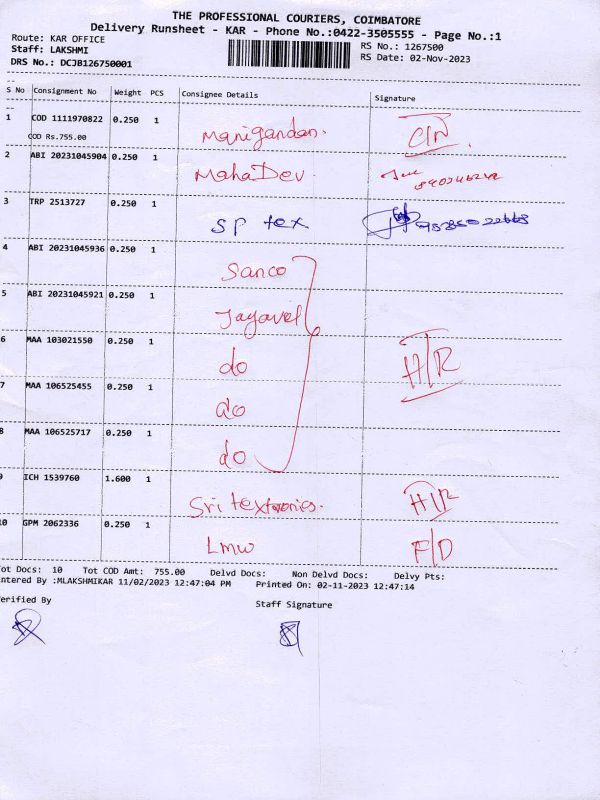 THE PROFESSIONAL COURIERS, COIMBATORE
Delivery Runsheet - KAR - Phone No.:0422-3505555 - Page No.:1
Route: KAR OFFICE
RS No.: 1267500
Staff: LAKSHMI
RS Date: 02-Nov-2023
DRS No.: DCJB126750001
S No Consignment No Weight PCS Consignee Details Signature
1 COD 1111970822 0.250 1 Manigandan. C/N
COD Rs.755.00
2 ABI 20231045904 0.250 1 MahaDev.
3 TRP 2513727 0.250 1 SP tex
4 ABI 20231045936 0.250 1 Sanco
5 ABI 20231045921 0.250 1 Jayavel
6 MAA 103021550 0.250 1 do H/R
7 MAA 106525455 0.250 1 do
8 MAA 106525717 0.250 1 do
9 ICH 1539760 1.600 1 Sri textronics. H/R
10 GPM 2062336 0.250 1 Lmw F/D
Tot Docs: 10 Tot COD Amt: 755.00 Delvd Docs: Non Delvd Docs: Delvy Pts:
Entered By :MLAKSHMIKAR 11/02/2023 12:47:04 PM Printed On: 02-11-2023 12:47:14
Verified By Staff Signature